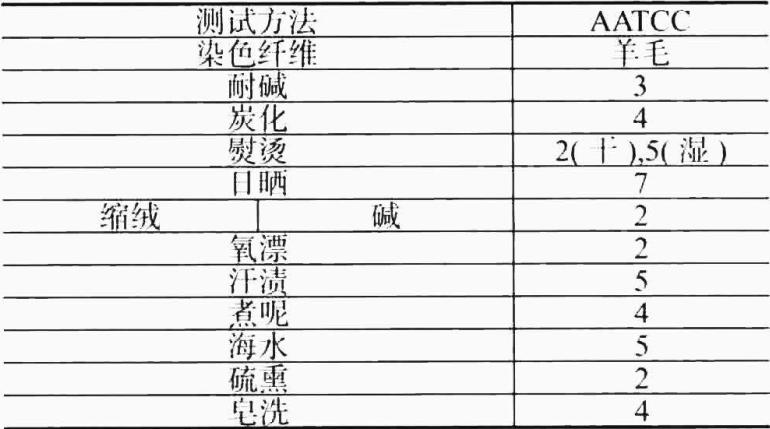 测试方法 AATCC
染色纤维 羊毛
耐碱 3
炭化 4
熨烫 2(干),5(湿)
日晒 7
缩绒 碱 2
氧漂 2
汗渍 5
煮呢 4
海水 5
硫熏 2
皂洗 4